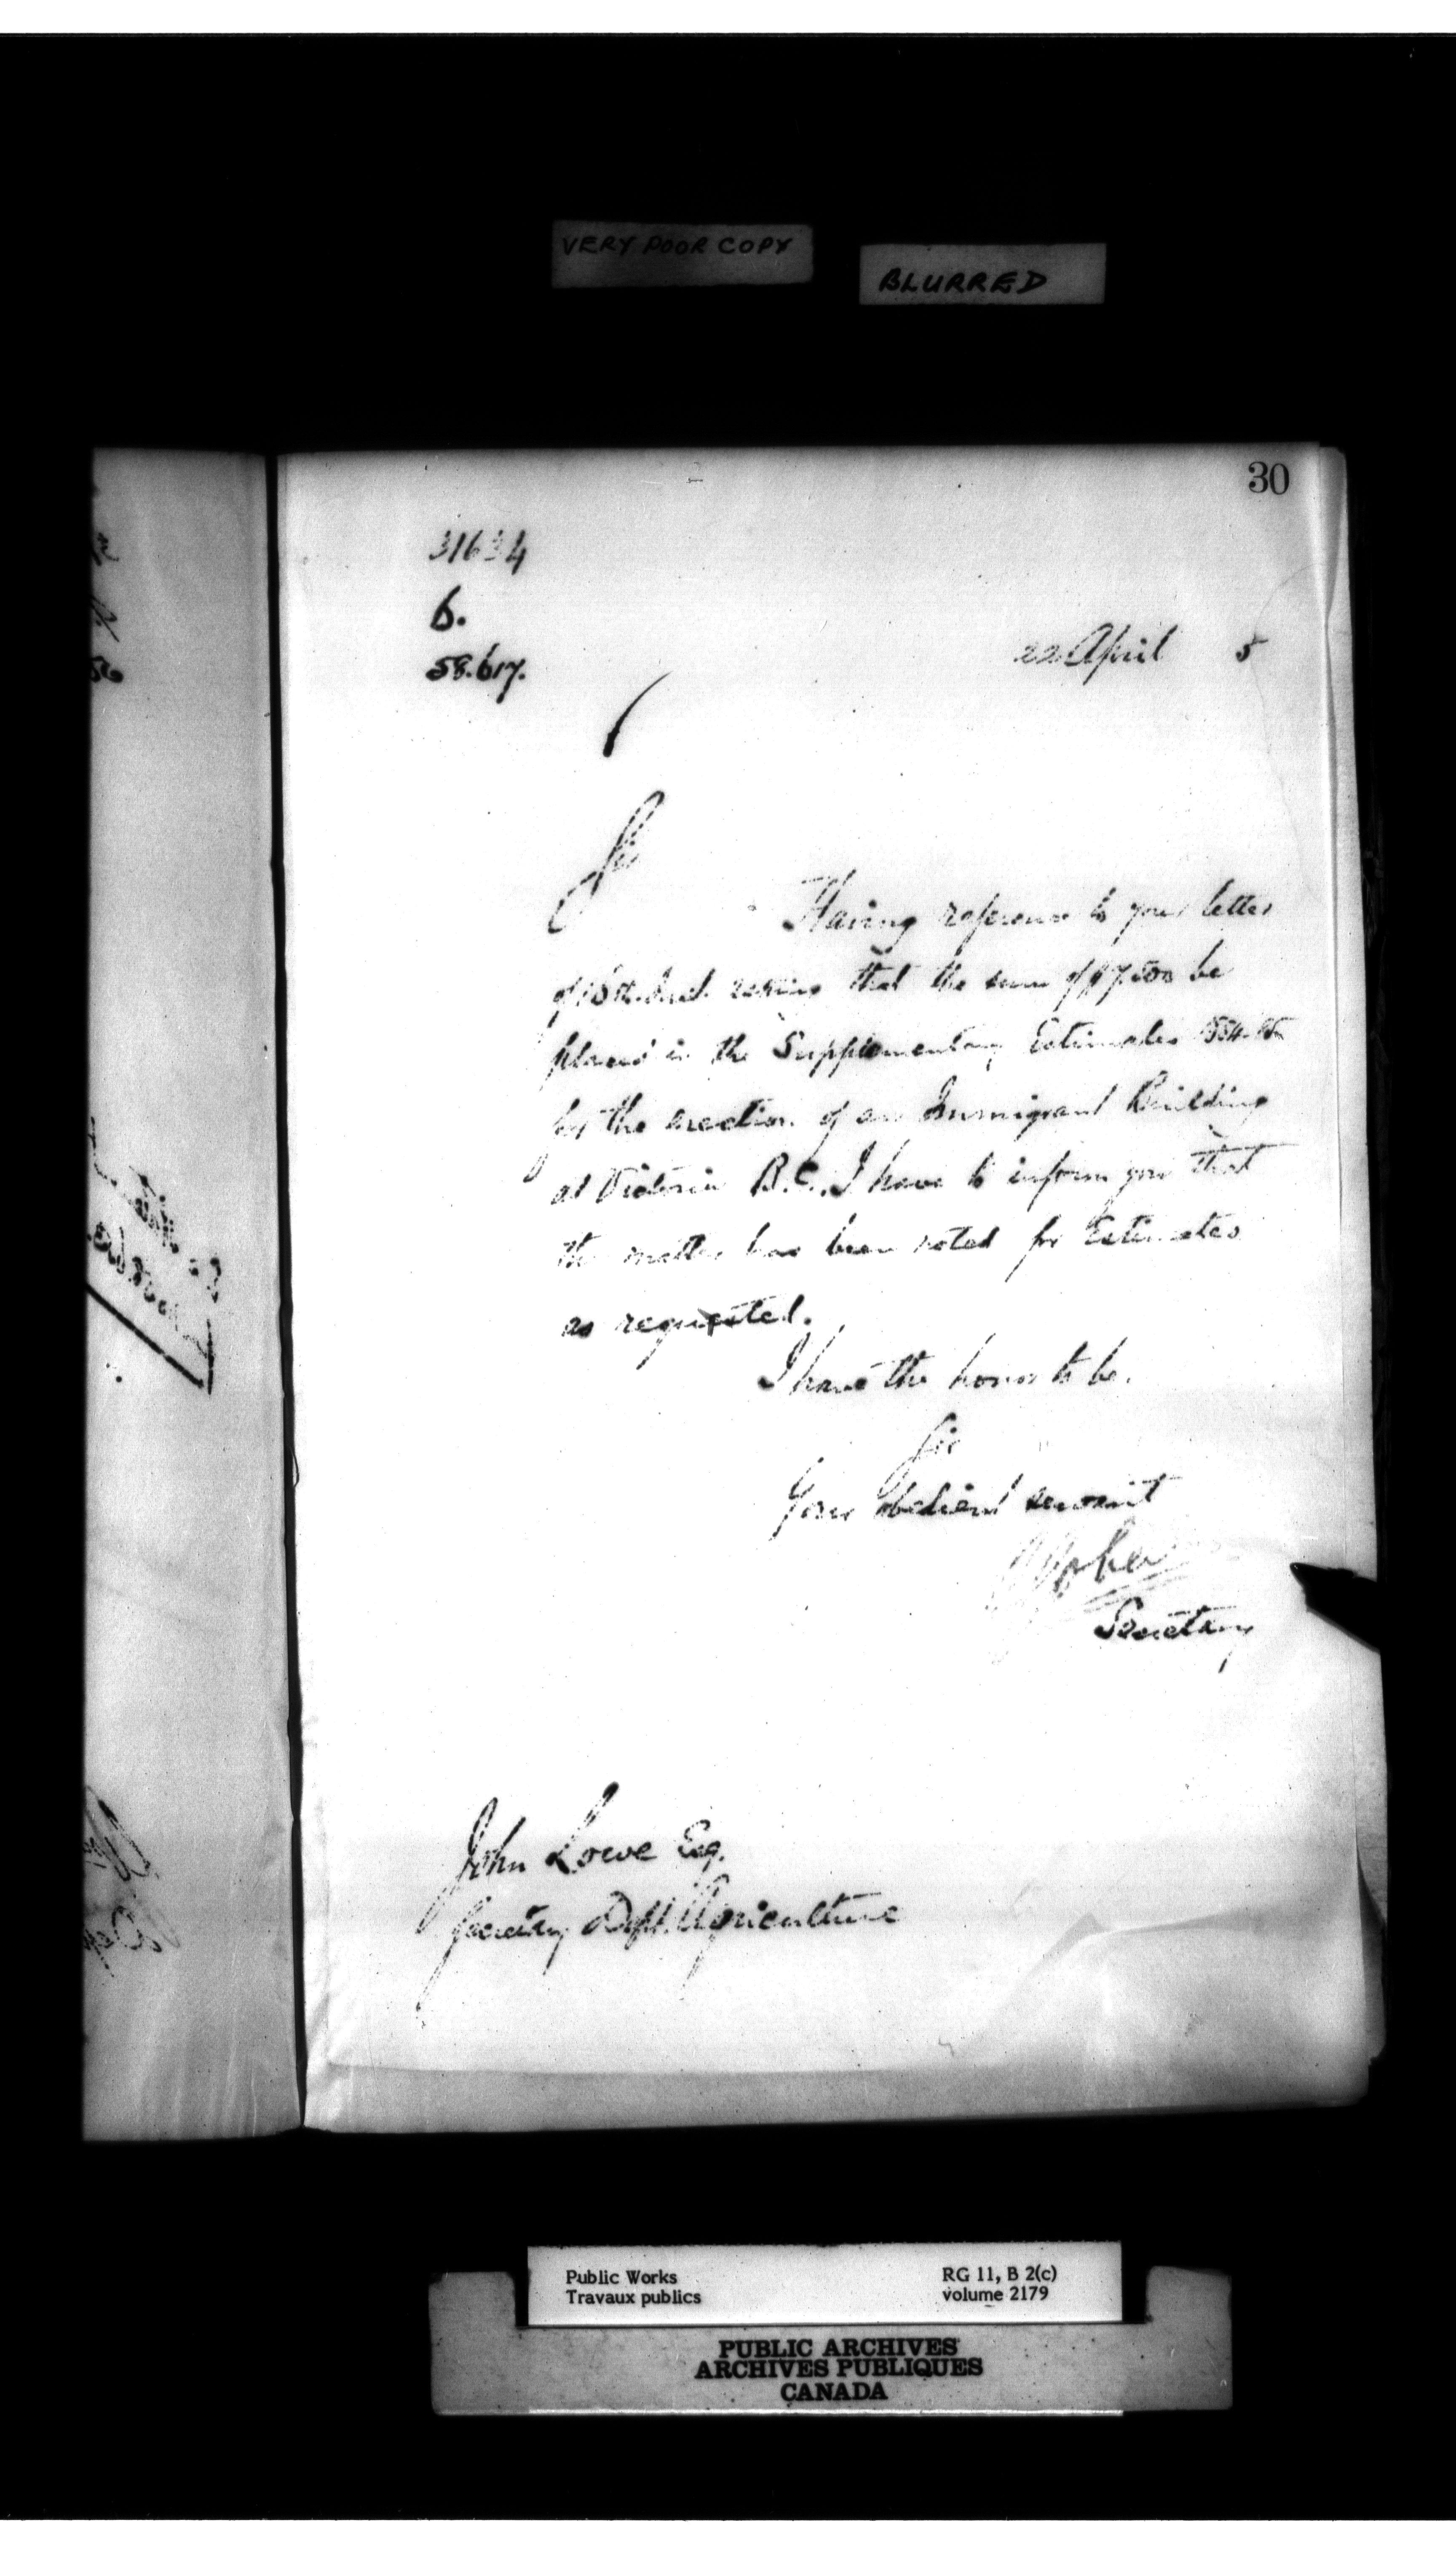 VERY POOR COPY
BLURRED
30
31634
6.
58.617.
22 April 5
Sir
Having reference to your letter
of 18th. Inst. asking that the sum of $7.500 be
placed in the Supplementary Estimates 1884-85
for the erection of an Immigrant Building
at Victoria B.C. I have to inform you that
the matter has been noted for Estimates
as requested.
I have the honor to be.
Sir
Your obedient servant
Secretary
John Lowe Esq.
Secretary Dept. Agriculture
Public Works
Travaux publics
RG 11, B 2(c)
volume 2179
PUBLIC ARCHIVES
ARCHIVES PUBLIQUES
CANADA